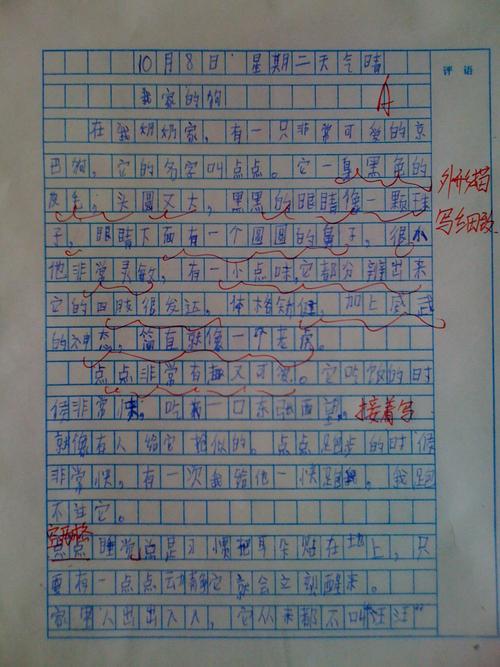 10月8日 星期二 天气晴
评语
我家的狗
A
在我奶奶家,有一只非常可爱的京
巴狗,它的名字叫点点。它一身黑色的
皮毛,头圆又大,黑黑的眼睛像一颗珠
子,眼睛下面有一个圆圆的鼻子,很小
他非常灵敏,有一小点味它都分辨出来
它的四肢很发达,体格幼健,加上威武
的神态,简直就像一个老虎。
点点非常有趣又可爱。它吃饭的时
候非常快。吃我一口东张西望。接着写
就像有人给它抢似的。点点跑步的时候
非常快。有一次我给他一快跑,我跑
不过它。
点点睡觉总是习惯把耳朵贴在地上,只
要有一点点动静它就会立刻醒来。
家里人出出入入,它从来都不叫“汪汪”
外形描
写细致